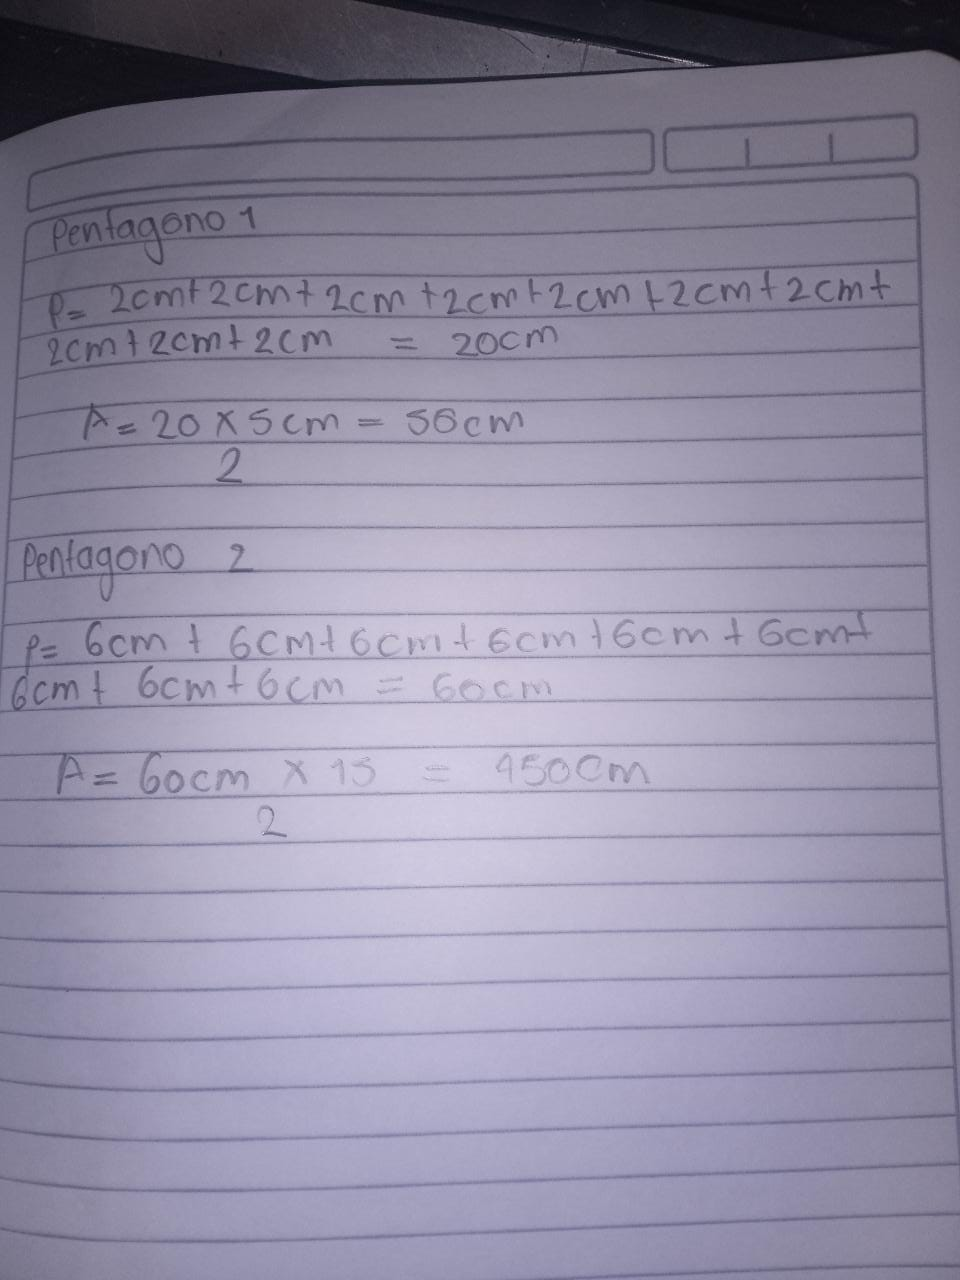 Pentagono 1
P= 2cm+2cm+2cm+2cm+2cm+2cm+2cm+
2cm+2cm+2cm = 20cm
A= 20 x 5cm = 50cm
2
Pentagono 2
P= 6cm + 6cm+6cm+6cm+6cm+6cm+
6cm+ 6cm+6cm = 60cm
A= 60cm x 15 = 450cm
2